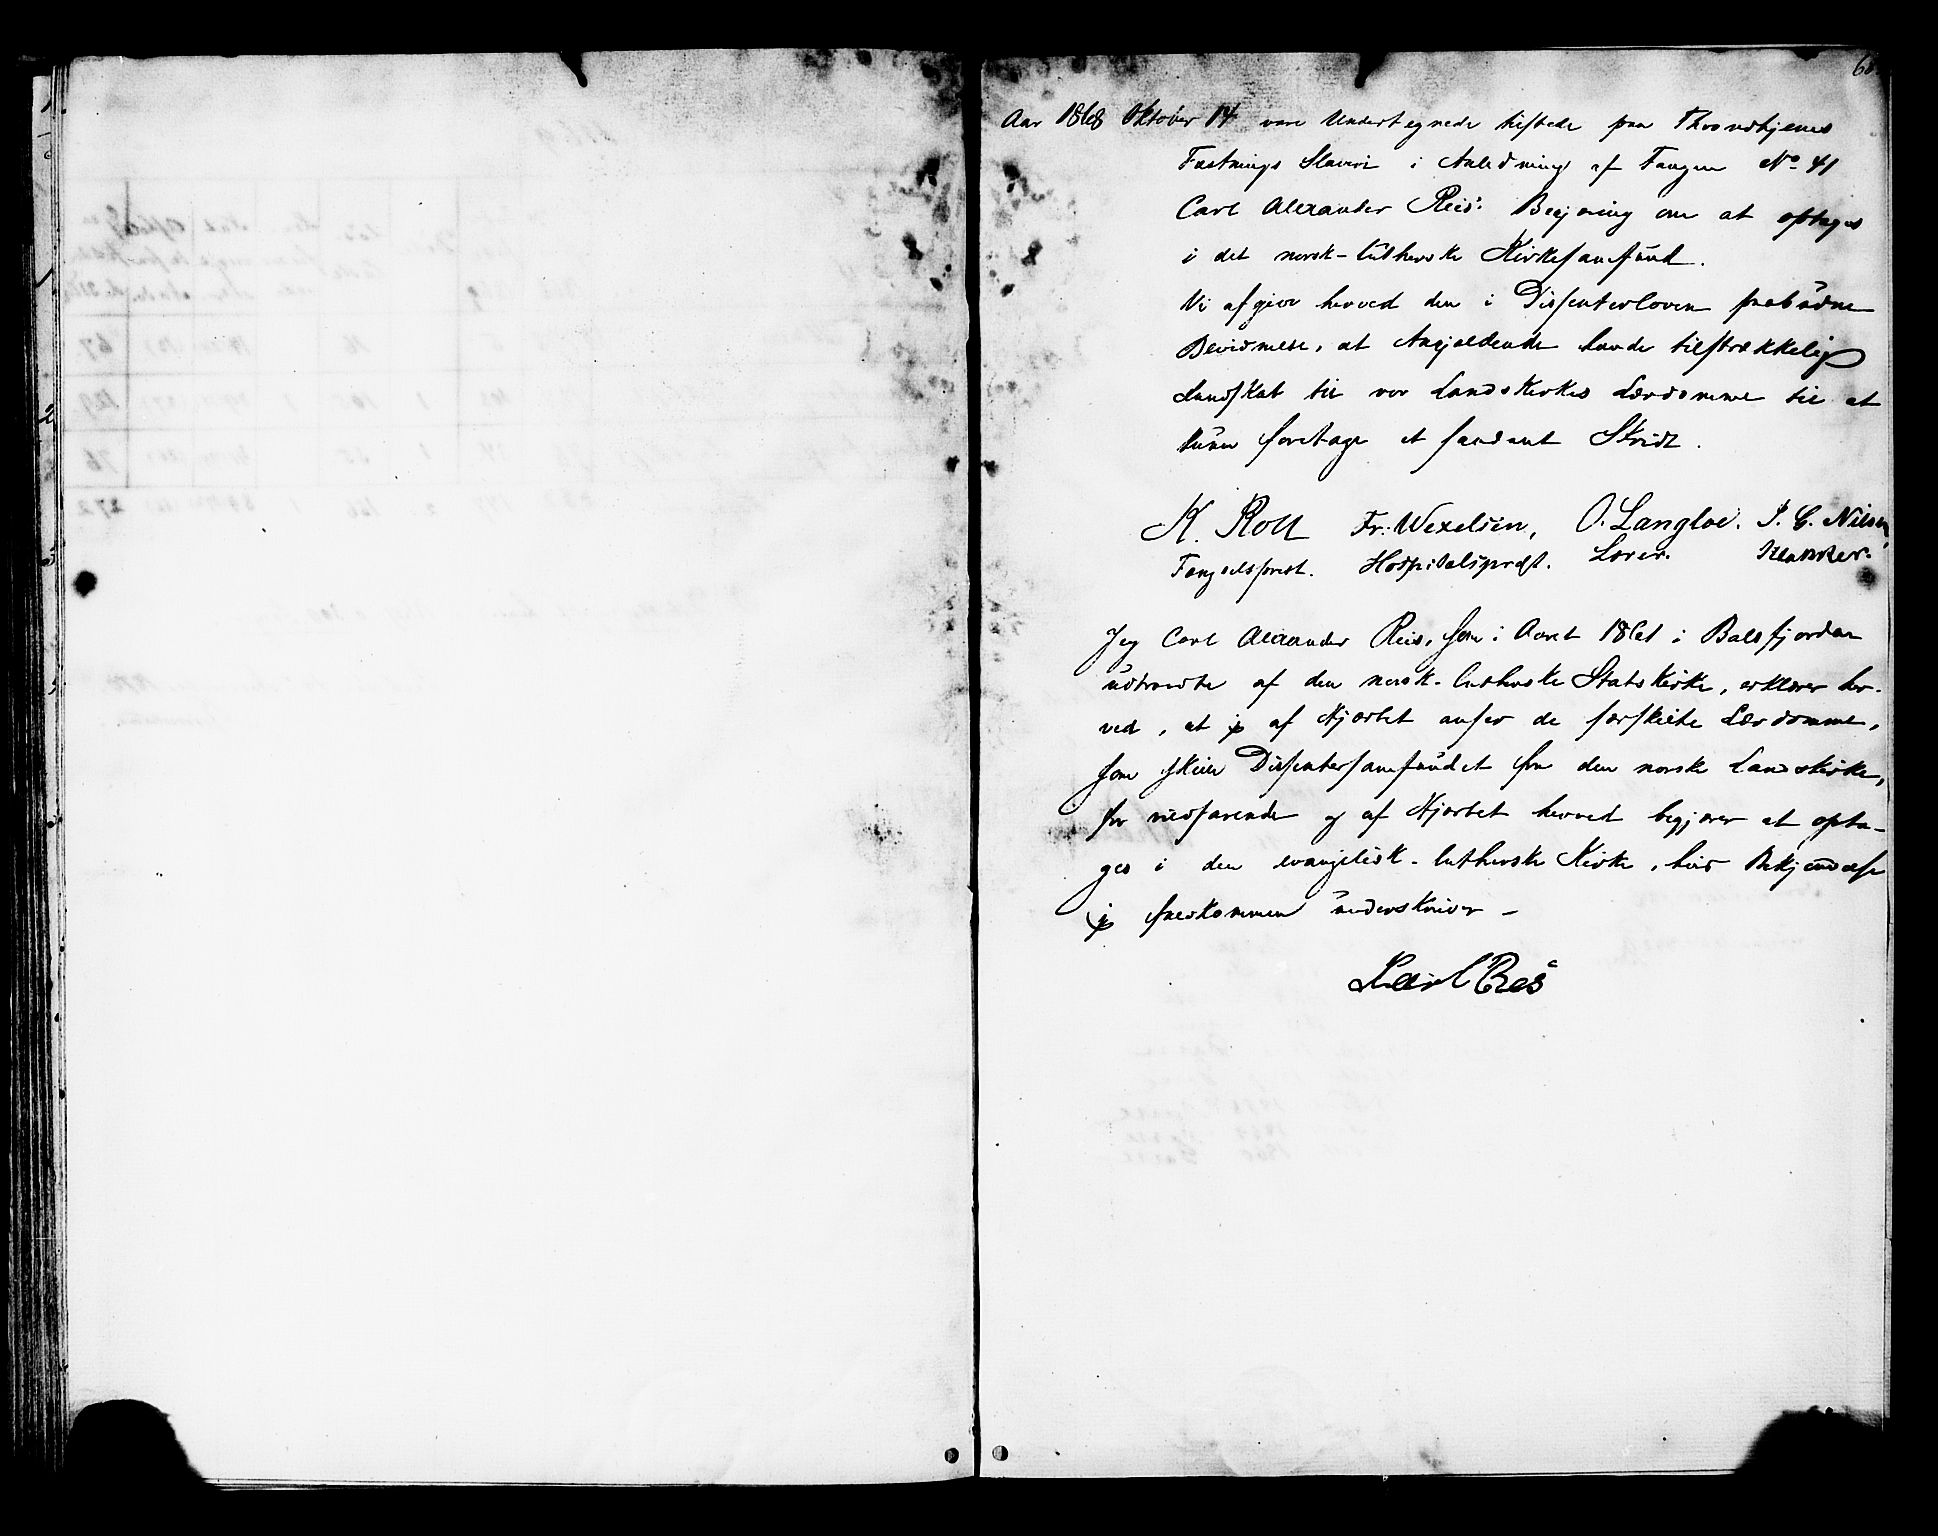 Aar 1868 Oktober 14 vare Undertegnede tilstede paa Throndhjems
Fæstnings Slaveri i Anledning af Fangen No 41
Carl Alexander Reis' Begjæring om at optages
i det norsk-lutherske Kirkesamfund.
Vi afgive herved den i Dissenterloven paabudne
Bevidnelse, at Angjældende havde tilstrækkelig
Kundskab til vor Landskirkes Lærdomme til at
kunne foretage et saadant Skridt.
K. Roll Fr. Wexelsen, O. Langloe. P. C. Nilsen,
Fængselsprest. Hospitalsprest. Lærer. Klokker.
Jeg Carl Alexander Reis, som i Aaret 1861 i Balsfjorden
udtraadte af den norsk-lutherske Statskirke, erklærer her-
ved, at jeg af Hjertet anser de særskilte Lærdomme,
som skille Dissentersamfundet fra den norske Landskirke,
for vildfarende og af Hjertet herved begjærer at opta-
ges i den evangelisk-lutherske Kirke, hvis Bekjendelse
jeg fuldkommen underskriver –
Carl Reis